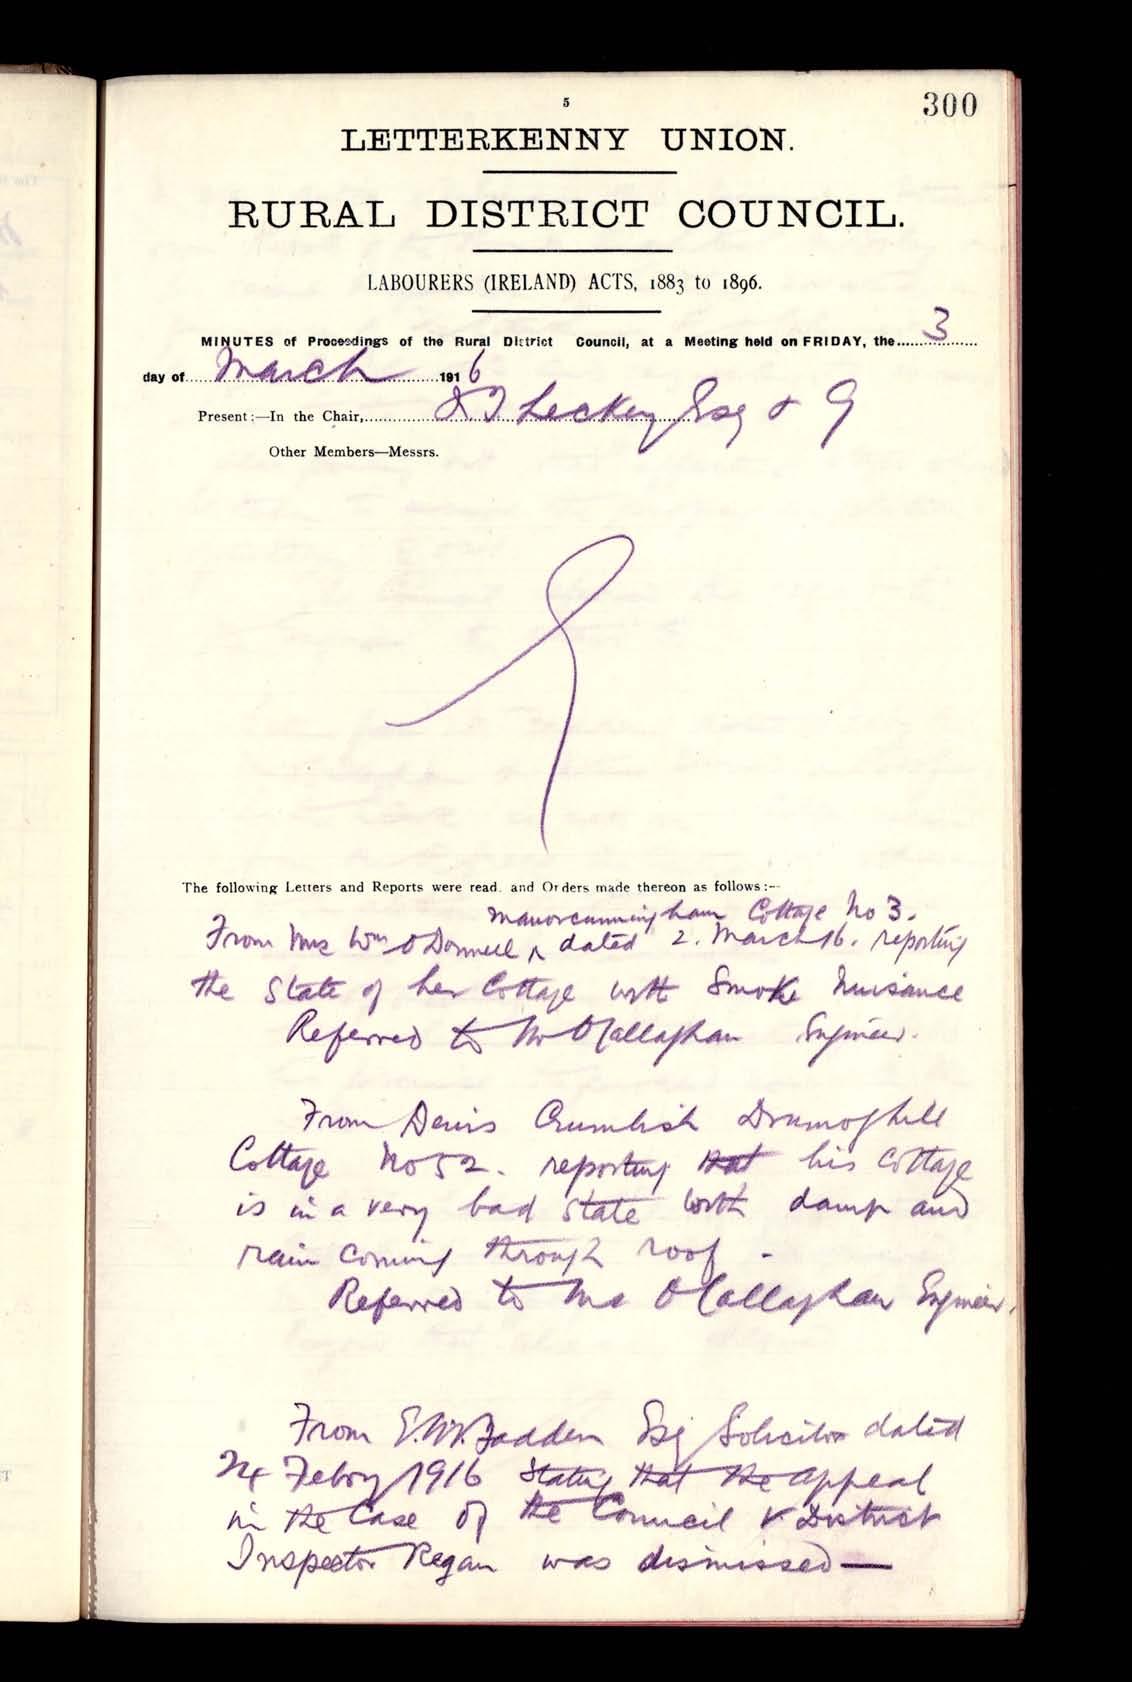 5
300
LETTERKENNY UNION.
RURAL DISTRICT COUNCIL.
LABOURERS (IRELAND) ACTS, 1883 to 1896.
MINUTES of Proceedings of the Rural District Council, at a Meeting held on FRIDAY, the 3
day of March 1916
Present:—In the Chair, Leckey Esq &
Other Members—Messrs.
The following Letters and Reports were read. and Orders made thereon as follows:—
Manorcunningham Cottage No 3.
From Mrs Wm O Donnell ^ dated 2. March 16. reporting
the State of her Cottage with Smoke Nuisance
Referred to Mr O Callaghan Engineer.
From Denis Crumlish Drumoghill
Cottage No 52. reporting that his cottage
is in a very bad state with damp and
rain coming through roof -
Referred to Mr O Callaghan Engineer.
From Fadden Esq Solicitor dated
24 Febry 1916 Stating that the appeal
in the Case of the Council V District
Inspector Regan was dismissed—